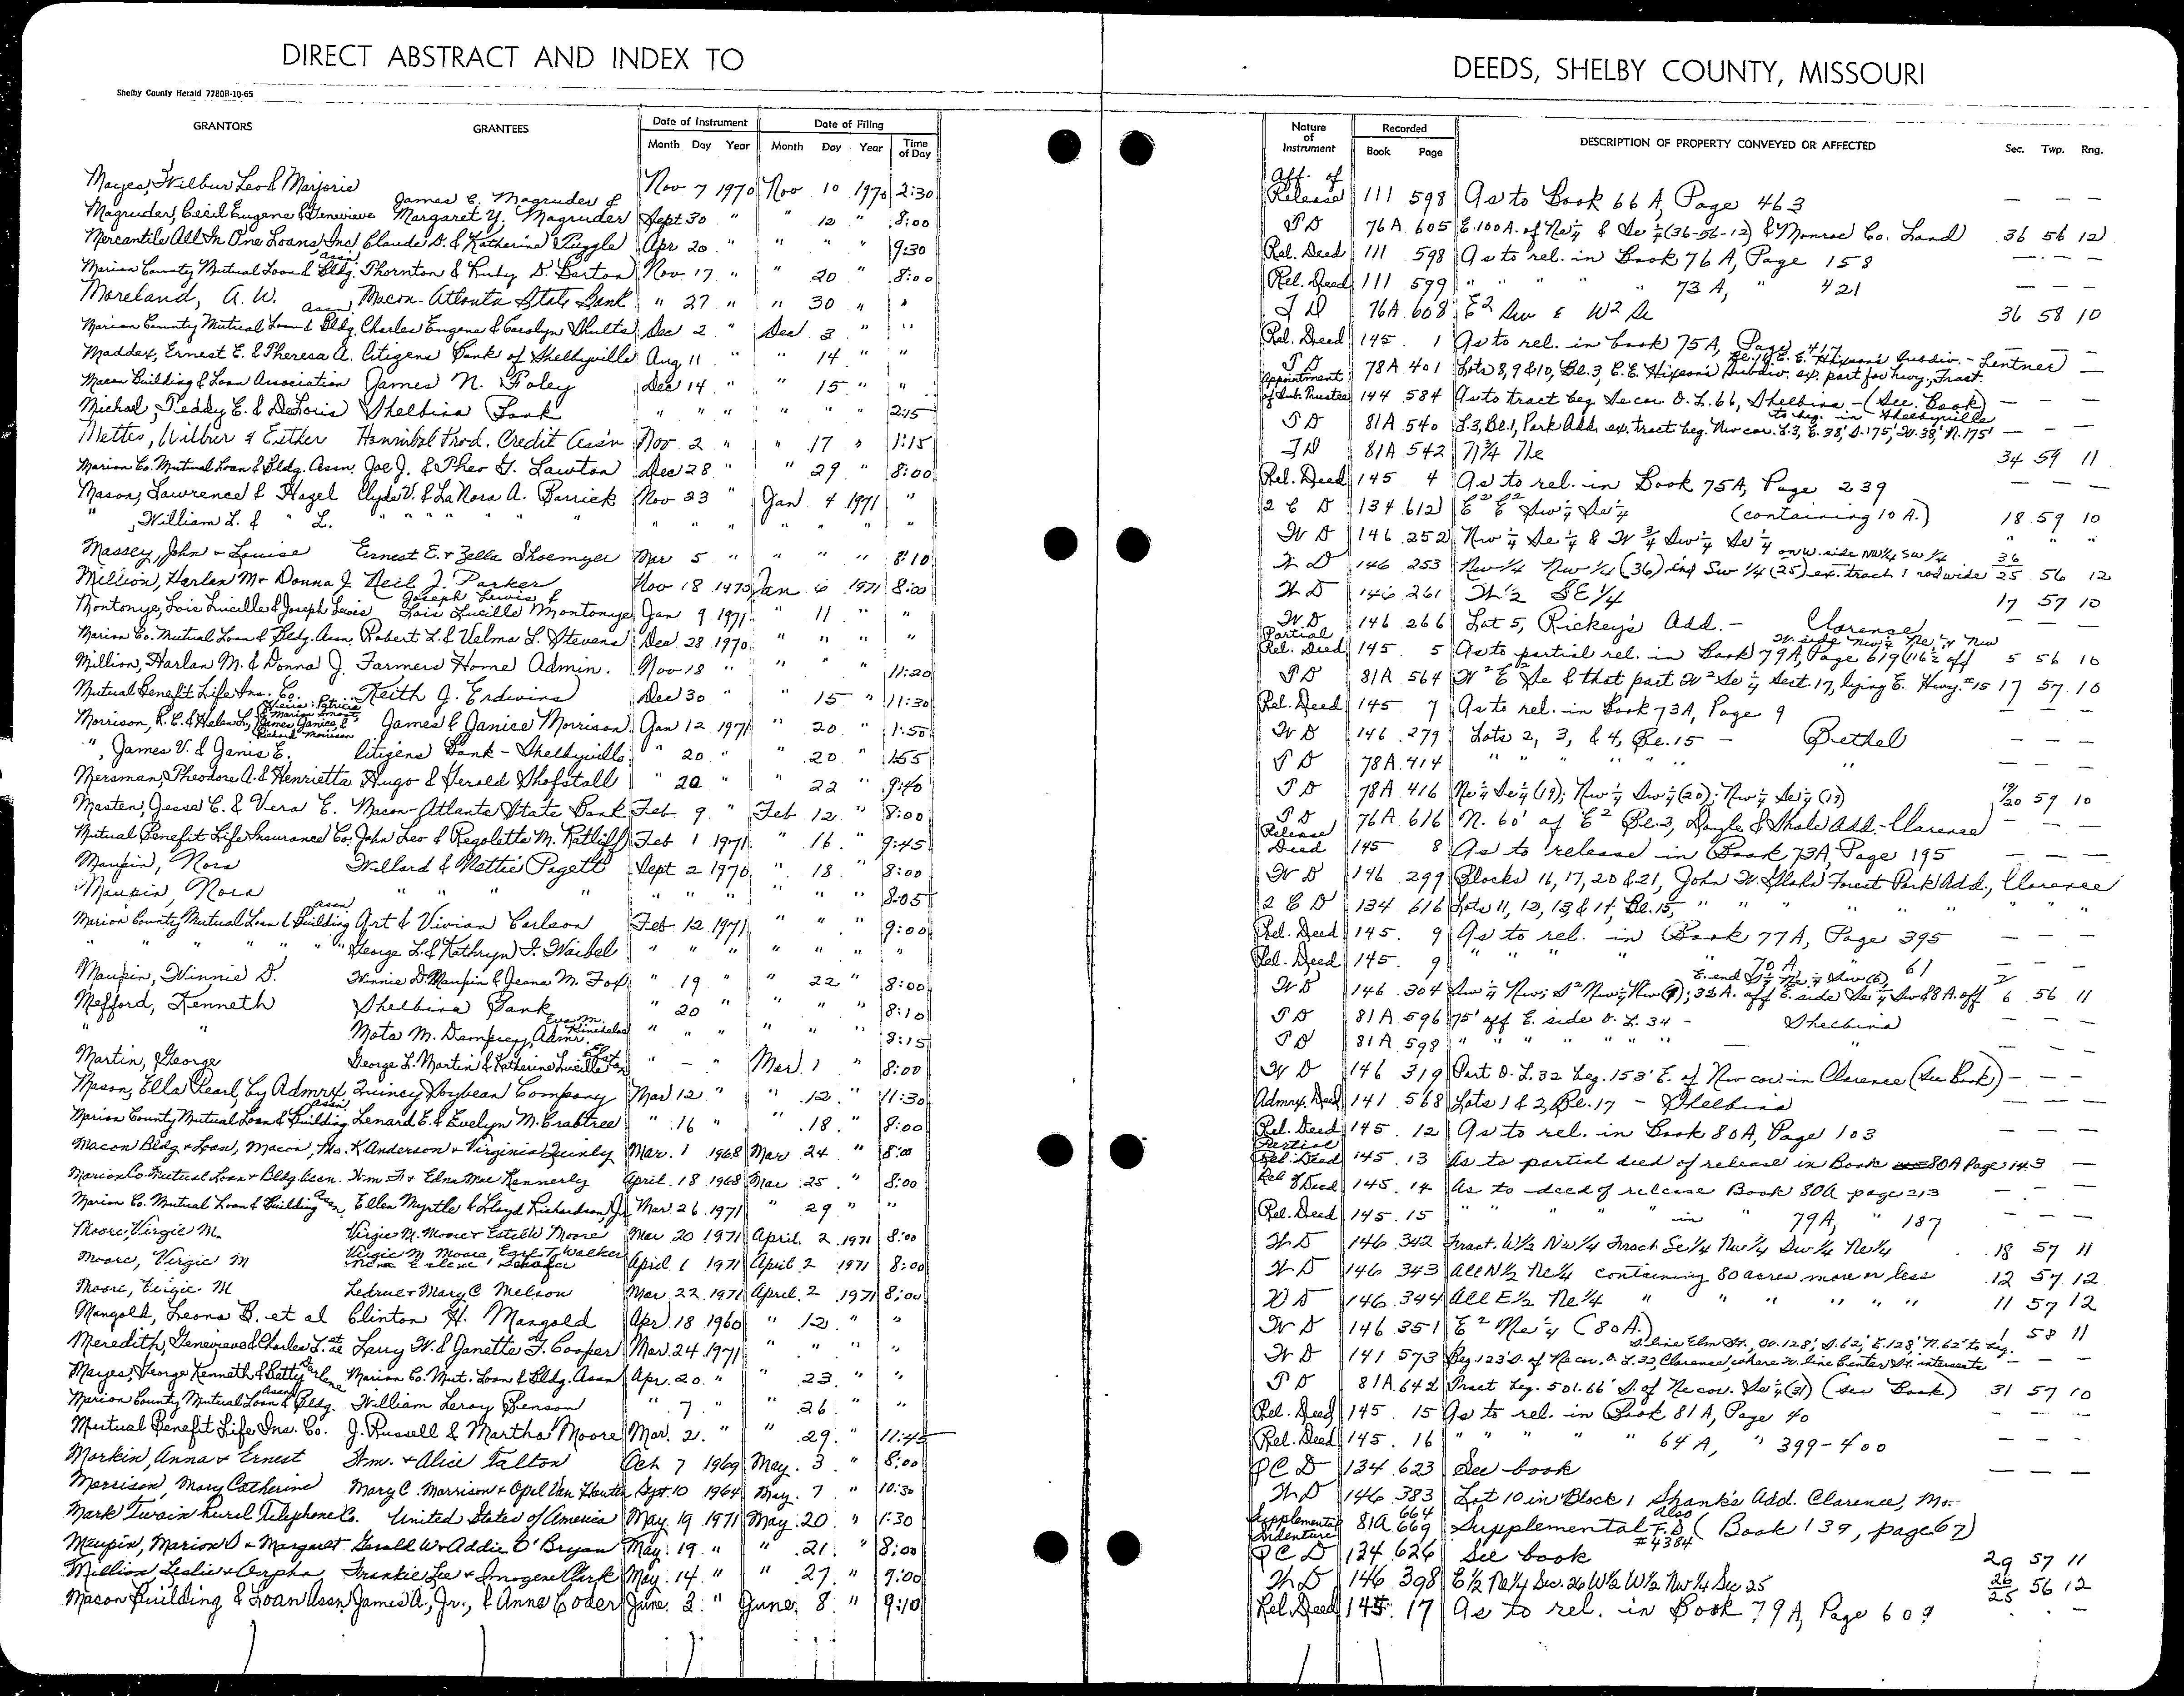 DIRECT ABSTRACT AND INDEX TO
Shelby County Herald 7780B-10-65
GRANTORS GRANTEES Date of Instrument Date of Filing
Month Day Year Month Day Year Time of Day
Mayes, Wilbur Leo & Marjorie Nov 7 1970 Nov 10 1970 2:30
James E. Magruder &
Magruder, Cecil Eugene & Genevieve Margaret Y. Magruder Sept 30 " " 12 " 8:00
Mercantile All In One Loans, Inc Claude D. & Katherine Tuggle Apr 20 " " " " 9:30
Marion County Mutual Loan & Bldg. Assn Thornton & Ruby D. Barton Nov. 17 " " 20 " 8:00
Moreland, A. W. Macon-Atlanta State Bank " 27 " " 30 " "
Marion County Mutual Loan & Bldg. Assn. Charles Eugene & Carolyn Shults Dec 2 " Dec. 3 " "
Maddex, Ernest E. & Theresa A. Citizens Bank of Shelbyville Aug 11 " " 14 " "
Macon Building & Loan Association James N. Foley Dec 14 " " 15 " "
Michael, Teddy E. & DeLoris Shelbina Bank " " " " " " 2:15
Mettes, Wilbur & Esther Hannibal Prod. Credit Ass'n Nov. 2 " " 17 " 1:15
Marion Co. Mutual Loan & Bldg. Assn. Joe J. & Theo G. Lawton Dec 28 " " 29 " 8:00
Mason, Lawrence & Hazel Clyde V. & LaNora A. Barrick Nov 23 " Jan. 4 1971 "
" , William L. & " L. " " " " " " " " " " " "
Massey, John + Louise Ernest E. + Zella Shoemyer Mar 5 " " " " 8:10
Million, Harlan M + Donna J Neil J. Parker Nov 18 1970 Jan 6 1971 8:00
Joseph Lewis &
Montonye, Lois Lucille & Joseph Lewis Lois Lucille Montonye Jan 9 1971 " 11 " "
Marion Co. Mutual Loan & Bldg. Assn. Robert L. & Velma L. Stevens Dec 28 1970 " " " "
Million, Harlan M. & Donna J. Farmers Home Admin. Nov 18 " " " " 11:20
Mutual Benefit Life Ins. Co. Keith J. Erdwins Dec 30 " " 15 " 11:30
Morrison, R. E. & Helen L., James & Janice Morrison Jan 12 1971 " 20 " 1:50
", James V. & Janis E. Citizens Bank - Shelbyville " 20 " " 20 " 1:55
Mersman, Theodore A. & Henrietta Hugo & Gerald Shofstall " 20 " " 22 " 9:40
Masten, Jesse C. & Vera E. Macon-Atlanta State Bank Feb. 9 " Feb 12 " 8:00
Mutual Benefit Life Insurance Co. John Leo & Regoletta M. Ratliff Feb 1 1971 " 16 " 9:45
Maupin, Nora Willard & Mettie Pagett Sept 2 1970 " 18 " 8:00
Maupin, Nora " " " " " " " " " " 8:05
Marion County Mutual Loan & Building Assn Art & Vivian Carlson Feb. 12 1971 " " " 9:00
" " " " " " George L. & Kathryn F. Waibel " " " " " " "
Maupin, Winnie D. Winnie D. Maupin & Jeana M. Fox " 19 " " 22 " 8:00
Mefford, Kenneth Shelbina Bank " 20 " " " " 8:10
" " Mota M. Dempsey, Admr. Eva M. " " " " " " 8:15
Martin, George George L. Martin & Katherine Lucille " - " Mar. 1 " 8:00
Mason, Ella Pearl, by Admrx. Quincy Soybean Company Mar. 12 " " 12 " 11:30
Marion County Mutual Loan & Building Assn. Lenard E. & Evelyn M. Crabtree " 16 " " 18 " 8:00
Macon Bldg + Loan, Macon, Mo. K Anderson + Virginia Quinly Mar. 1 1968 Mar 24 " 8:00
Marion Co. Mutual Loan + Bldg Assn. Wm. F. + Edna Mae Kennerly April 18 1968 Mar 25 " 8:00
Marion Co. Mutual Loan & Building Assn, Ellen Myrtle & Lloyd Richardson, Jr. Mar. 26 1971 " 29 " "
Moore, Virgie M. Virgie M. Moore + Estelle Moore Mar 20 1971 April 2 1971 8:00
Moore, Virgie M Virgie M Moore, Earl T. Walker April 1 1971 April 2 1971 8:00
Moore, Virgie M Ledrue + Mary C Melson Mar 22 1971 April 2 1971 8:00
Mangold, Leona B. et al Clinton H. Mangold Apr 18 1960 " 12 " "
Meredith, Genevieve & Charles L. et al Larry W. & Janette F. Cooper Mar. 24 1971 " " " "
Mayes, George Kenneth & Betty Darlene Marion Co. Mut. Loan & Bldg. Assn Apr. 20 " " 23 " "
Marion County Mutual Loan & Bldg. Assn William Leroy Benson " 7 " " 26 " "
Mutual Benefit Life Ins. Co. J. Russell & Martha Moore Mar. 2 " " 29 " 11:45
Morkin, Anna + Ernest Wm. + Alice Talton Oct 7 1969 May. 3 " 8:00
Morrison, Mary Catherine Mary C. Morrison + Opel Van Houten Sept. 10 1964 May. 7 " 10:30
Mark Twain Rural Telephone Co. United States of America May. 19 1971 May. 20 " 1:30
Maupin, Marion D + Margaret Gerald W + Addie O'Bryan May. 19 " " 21 " 8:00
Million, Leslie + Orpha, Frankie Lee + Imogene Clark May. 14 " " 27 " 9:00
Macon Building & Loan Assn. James A., Jr., & Anne Coder June. 2 " June. 8 " 9:10
DEEDS, SHELBY COUNTY, MISSOURI
Nature of Instrument Recorded DESCRIPTION OF PROPERTY CONVEYED OR AFFECTED Sec. Twp. Rng.
Book Page
Aff. of
Release 111 598 As to Book 66 A, Page 463 — — —
T D 76A 605 E. 100 A. of Ne¼ & Se ¼ (36-56-12) & Monroe Co. Land 36 56 12
Rel. Deed 111 598 As to rel. in Book 76 A, Page 158 — — —
Rel. Deed 111 599 " " " " 73 A, " 421 — — —
T D 76A 608 E² Sw & W² Se 36 58 10
Rel. Deed 145 1 As to rel. in book 75A, Page 417 — — —
T D 78A 401 Lots 8, 9 & 10, Bl. 3, C. E. Hixson's Subdiv. ex. part for hwy., Tract. Lentner —
Appointment of Sub. Trustee 144 584 As to tract beg Se cor. O. L. 66, Shelbina - (See Book) — — —
to beg. in Shelbyville
T D 81A 540 L. 3, Bl. 1, Park Add. ex. tract beg. Nw cor. L. 3, E. 38', S. 175', W. 38', N. 175' — — —
T D 81A 542 N¾ Ne 34 59 11
Rel. Deed 145 4 As to rel. in Book 75A, Page 239 — — —
2 C D 134 612 E² E² Sw¼ Se¼ (containing 10 A.) 18 59 10
W D 146 252 Nw ¼ Se ¼ & W ¾ Sw¼ Se ¼ " " "
on W. side NW¼ SW ¼
W D 146 253 Nw ¼ Nw ¼ (36) and Sw ¼ (25) ex. tract 1 rod wide 36/25 56 12
W D 146 261 W ½ SE ¼ 17 57 10
W. D 146 266 Lot 5, Rickey's Add. - Clarence — — —
W. side Nw¼ Ne¼ Nw
Partial Rel. Deed 145 5 As to partial rel. in Book 79A, Page 619 (116½ off 5 56 10
T D 81A 564 W² E² Se & that part W² Se ¼ Sect. 17, lying E. Hwy. #15 17 57 10
Rel. Deed 145 7 As to rel. in Book 73A, Page 9 — — —
W D 146 279 Lots 2, 3, & 4, Bl. 15 - Bethel — — —
T D 78A 414 " " " " " " — — —
T D 78A 416 Ne¼ Se¼ (19); Nw ¼ Sw ¼ (20); Nw ¼ Se¼ (19) 19/20 59 10
T D 76A 616 N. 60' of E² Bl. 3, Doyle & Shale Add. - Clarence — — —
Release Deed 145 8 As to release in Book 73A, Page 195 — — —
W D 146 299 Blocks 16, 17, 20 & 21, John W. Glahn Forest Park Add., Clarence
2 C D 134 616 Lots 11, 12, 13 & 14, Bl. 15, " " " " " "
Rel. Deed 145 9 As to rel. in Book 77A, Page 395 — — —
Rel. Deed 145 9 " " " " 70 A " 61 — — —
W D 146 304 Sw ¼ Nw; S² Nw¼ Nw; 32 A. off E. side Se ¼ Sw & 8 A. off 6 56 11
T D 81A 596 75' off E. side O. L. 34 - Shelbina — — —
T D 81A 598 " " " " " " — — —
W D 146 319 Part O. L. 32 beg. 153' E. of Nw cor. in Clarence (See Book) — — —
Admrx. Deed 141 568 Lots 1 & 2, Bl. 17 - Shelbina — — —
Rel. Deed 145 12 As to rel. in Book 80A, Page 103 — — —
Partial Rel. Deed 145 13 As to partial deed of release in Book 80A Page 143 —
Rel of Deed 145 14 As to deed of release Book 80A page 213 — — —
Rel. Deed 145 15 " " " " in " 79A, " 187 — — —
W D 146 342 Fract. W½ Nw¼ Fract. Se¼ Nw¼ Sw ¼ Ne¼ 18 57 11
W D 146 343 All N½ Ne¼ containing 80 acres more or less 12 57 12
W D 146 344 All E½ Ne¼ " " " " " 11 57 12
W D 146 351 E² Ne ¼ (80A.) 1 58 11
S. line Elm St., W. 128', S. 62', E. 128', N. 62' to beg.
W D 141 573 Beg. 123' S. of Ne cor. O. L. 32, Clarence, where W. line Center St. intersects — — —
T D 81A 642 Tract beg. 501.66' S. of Ne cor. Se ¼ (31) (See Book) 31 57 10
Rel. Deed 145 15 As to rel. in Book 81 A, Page 40 — — —
Rel. Deed 145 16 " " " " " 64 A, " 399-400 — — —
Q C D 134 623 See book — — —
W D 146 383 Lot 10 in Block 1 Shank's Add. Clarence, Mo.
Supplemental Indenture 81A 664 669 Supplemental T. D. also (Book 139, page 67)
#4384
Q C D 134 626 See book 29 57 11
W D 146 398 E½ Ne¼ Sec. 26 W½ W½ Nw ¼ Sec 25 26/25 56 12
Rel. Deed 145 17 As to rel. in Book 79A, Page 609